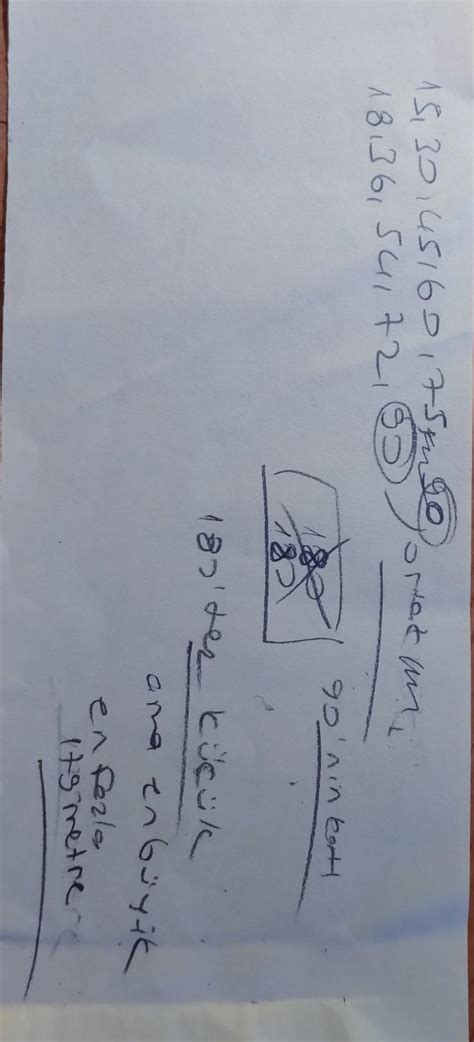 15, 30, 45, 60, 75, 90
18, 36, 54, 72, 90 ortak
180
180
90'nın katı
180'den küçük
ama en büyük
en fazla
179 metre